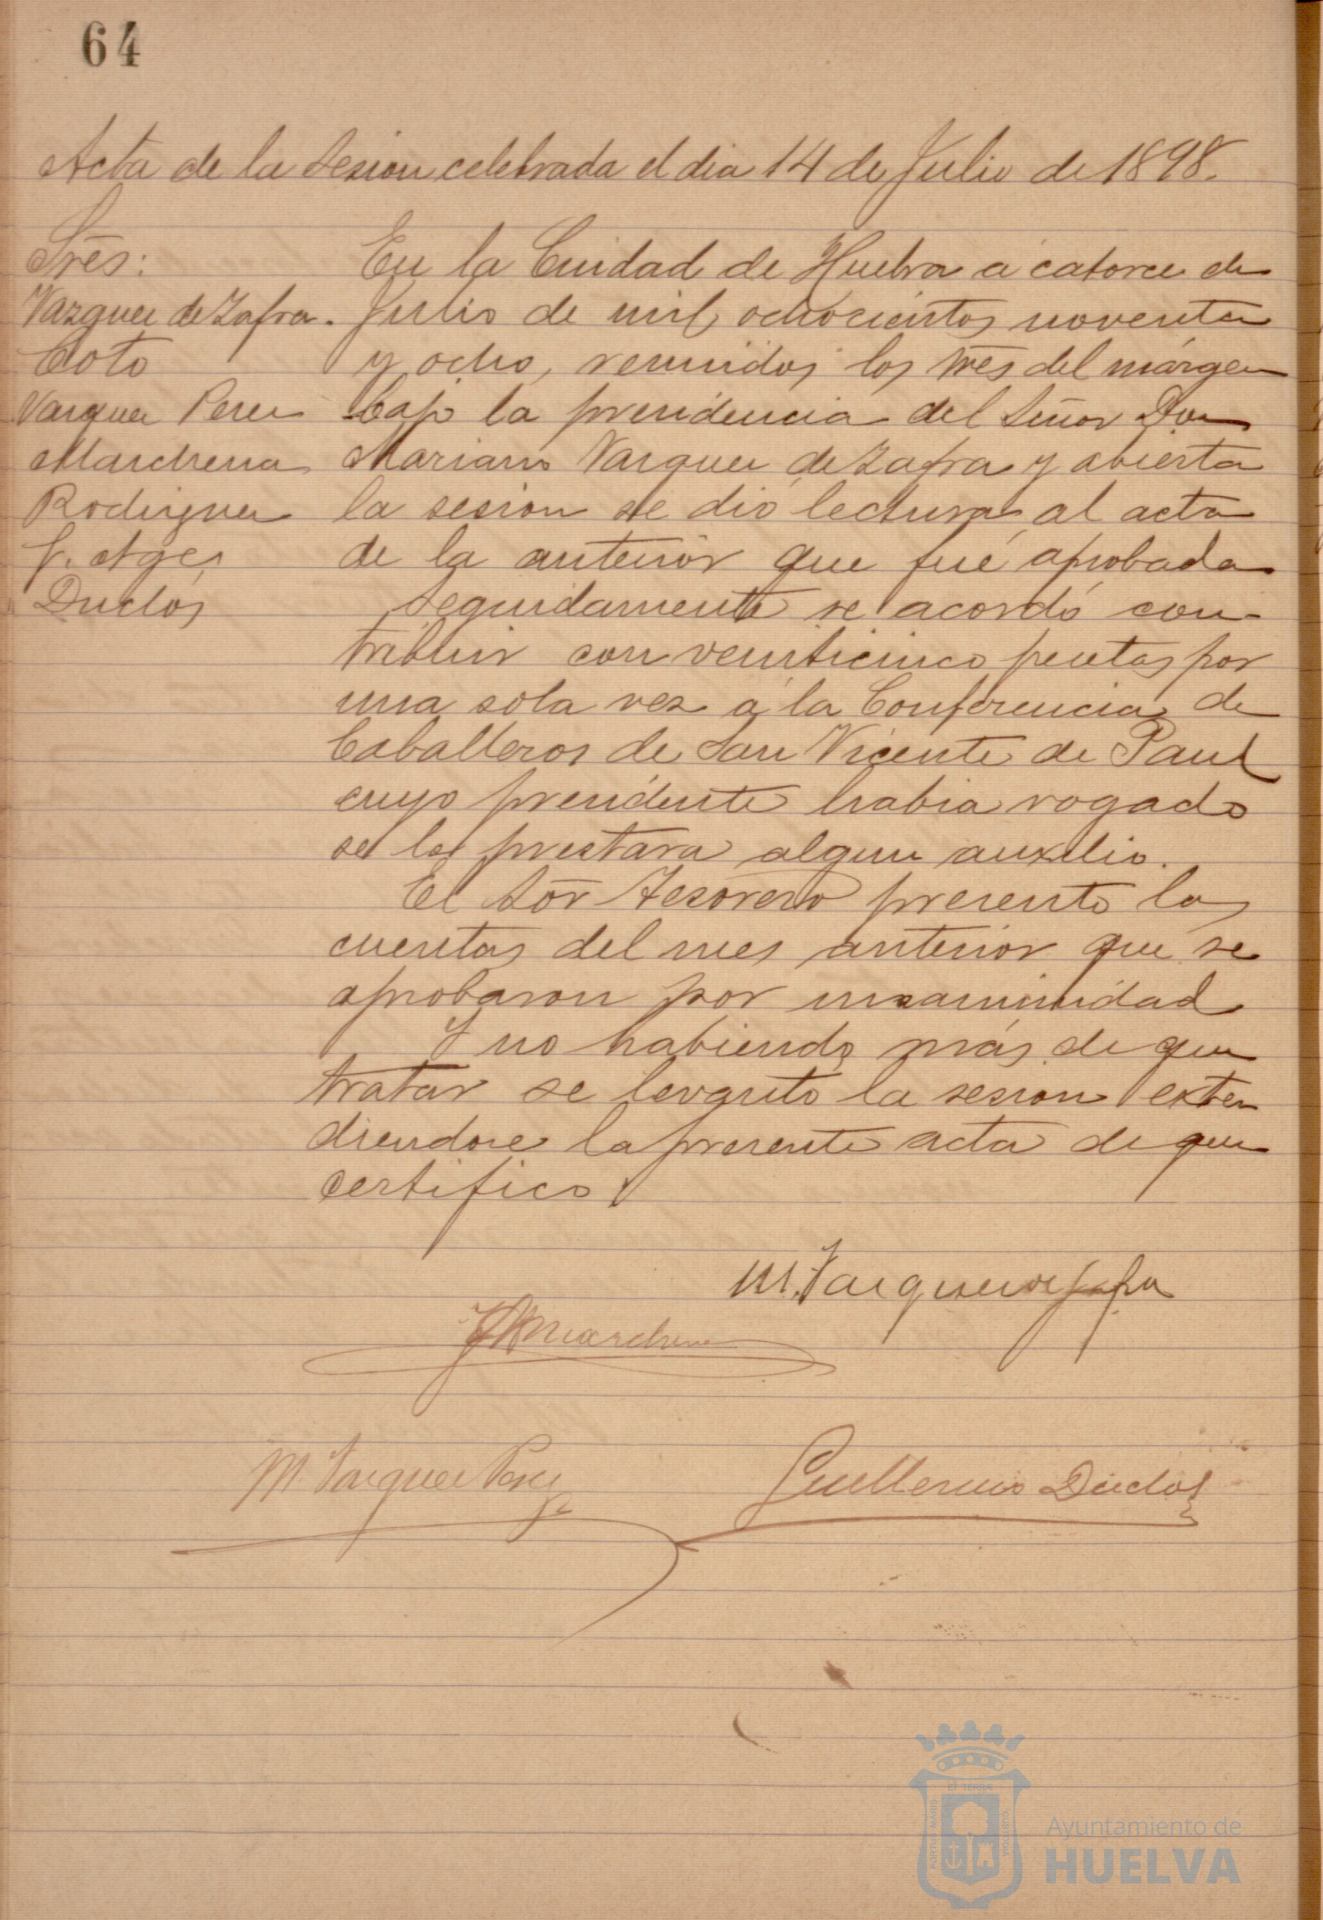 64
Acta de la Sesion celebrada el dia 14 de Julio de 1898.
Srēs:
Vazquez de Zafra.
Coto
Vazquez Perez
Marchena
Rodriguez
Duclós
En la Ciudad de Huelva á catorce de
Julio de mil ochocientos noventa
y ocho, reunidos los Srēs del márgen
bajo la presidencia del Señor Don
Mariano Vazquez de Zafra y abierta
la sesion se dió lectura al acta
de la anterior que fué aprobada
Seguidamente se acordó con-
tribuir con veinticinco pesetas por
una sola vez á la Conferencia de
Caballeros de San Vicente de Paul
cuyo presidente habia rogado
se le prestara algun auxilio.
El Sōr Tesorero presentó las
cuentas del mes anterior que se
aprobaron por unanimidad
Y no habiendo más de que
tratar se levantó la sesion exten
diendose la presente acta de que
certifico.
M. Vazquez de Zafra
Marchena
M. Vazquez Perez
Guillermo Duclós
PORTUS MARIS
ET TERRAE
CUSTODIA
Ayuntamiento de
HUELVA